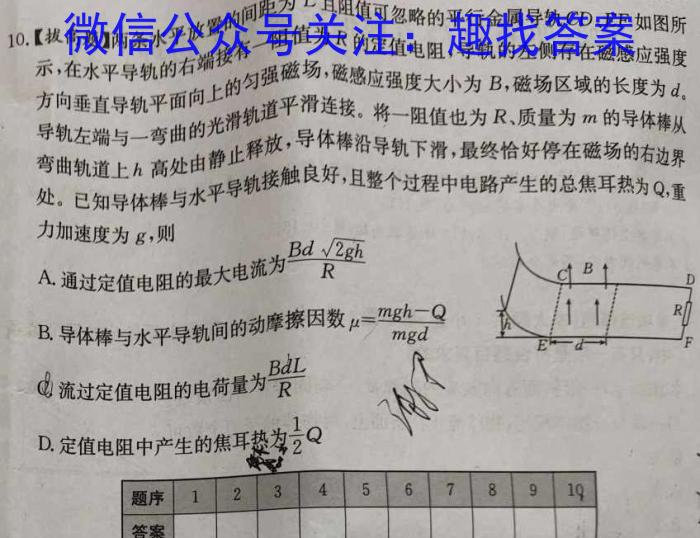 10.【拔 两条水平放置的间距为 L 且阻值可忽略的平行金属导轨 CD、EF 如图所
微信公众号关注：趣找答案
示,在水平导轨的右端接有一阻值为 R 的定值电阻,导轨的左侧存在磁感应强度
方向垂直导轨平面向上的匀强磁场,磁感应强度大小为 B,磁场区域的长度为 d。
导轨左端与一弯曲的光滑轨道平滑连接。将一阻值也为 R、质量为 m 的导体棒从
弯曲轨道上 h 高处由静止释放,导体棒沿导轨下滑,最终恰好停在磁场的右边界
处。已知导体棒与水平导轨接触良好,且整个过程中电路产生的总焦耳热为Q,重
力加速度为 g,则
A. 通过定值电阻的最大电流为 Bd √2gh / R
B. 导体棒与水平导轨间的动摩擦因数 μ= mgh−Q / mgd
流过定值电阻的电荷量为 BdL / R
D. 定值电阻中产生的焦耳热为 1/2 Q
C B D
h R
E d F
题序 1 2 3 4 5 6 7 8 9 10
答案